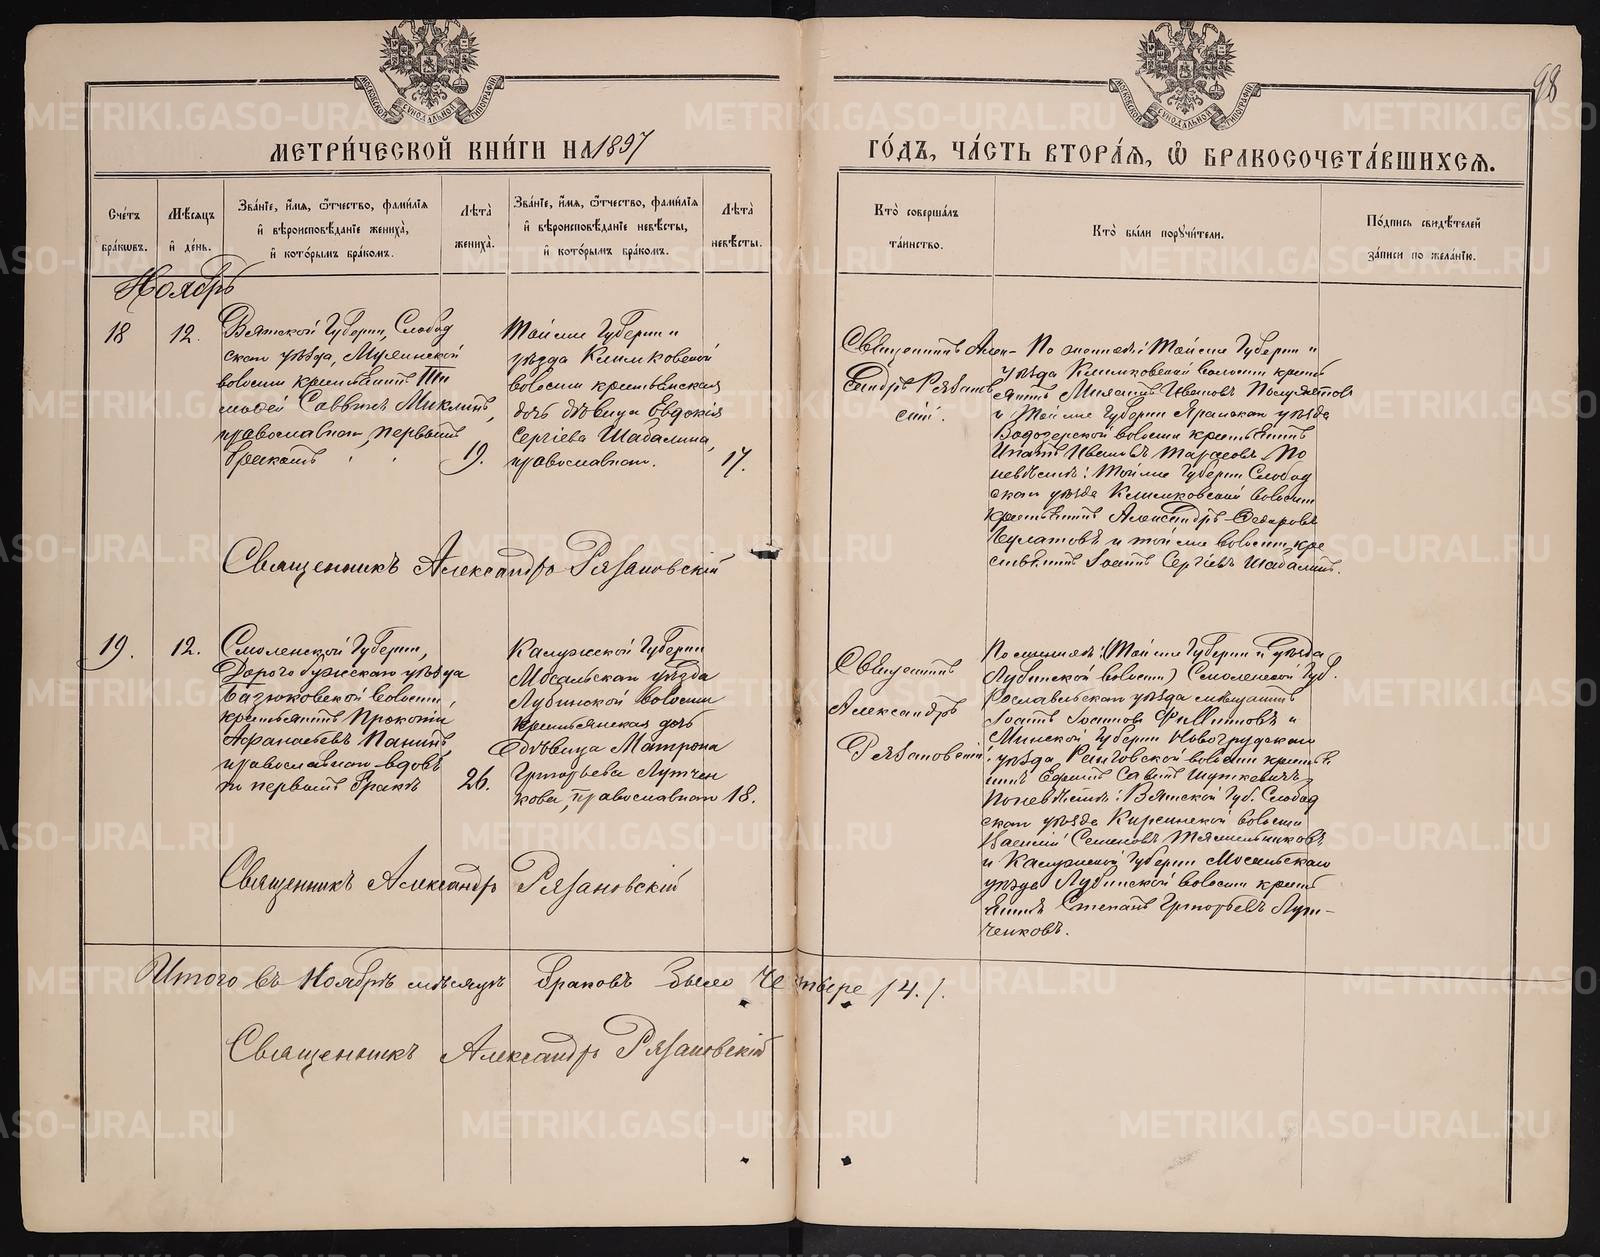 98
МЕТРИ́ЧЕСКОЙ КНИ́ГИ НА 1897
ГО́ДЪ, ЧА́СТЬ ВТОРА́Я, Ѽ БРАКОСОЧЕТА́ВШИХСЯ.
Сче́тъ бра́ковъ.
Мѣ́сяцъ и҆ де́нь.
Зва́нїе, и҆́мя, ѻ҆́тчество, фами́лїя и҆ вѣроисповѣ́данїе жениха̀, и҆ кото́рымъ бра́комъ.
Лѣ́та жениха̀.
Зва́нїе, и҆́мя, ѻ҆́тчество, фами́лїя и҆ вѣроисповѣ́данїе невѣ́сты, и҆ кото́рымъ бра́комъ.
Лѣ́та невѣ́сты.
Кто̀ соверша́лъ та́инство.
Кто̀ бы́ли поручи́тели.
По́дпись свидѣ́телей за́писи по жела́нїю.
Ноябрь
18
12.
Вятской Губерніи, Слобод
скаго уѣзда,
волости крестьянинъ
Савв
православнаго, первымъ
бракомъ
19.
Той же Губерніи и
уѣзда Климковской
волости крестьянская
дочь дѣвица Евдокія
Сергіева Шабалина,
православнаго.
17.
Священникъ Алек-
сандръ Рязанов
скій.
По женихѣ: Той же Губерніи и
уѣзда Климковской волости кресть
янинъ Ивановъ
и той же Губерніи Яранскаго уѣзда
волости крестьянинъ
Ивановъ Тарасовъ. По
невѣстѣ: Той же Губерніи Слобод
скаго уѣзда Климковской волости
крестьянинъ Александръ
Булатовъ и той же волости кре
стьянинъ Іоаннъ Сергіевъ Шабалинъ.
Священникъ Александръ Рязановскій
19.
12.
Смоленской Губерніи,
Дорогобужскаго уѣзда
Базюковской волости,
крестьянинъ Прокопій
Афанасьевъ Панинъ,
православнаго вдовъ
по первомъ бракѣ
26.
Калужской Губерніи
Мосальскаго уѣзда
Лубинской волости
крестьянская дочь
дѣвица Матрона
Григорьева Лутчен
кова, православнаго
18.
Священникъ
Александръ
Рязановскій
По женихѣ: (Той же Губерніи и уѣзда
Лубинской волости) Смоленской Губ.
Рославльскаго уѣзда мѣщанинъ
Іоаннъ Іоанновъ Филиповъ и
Минской Губерніи Новогрудскаго
уѣзда волости крестья
нинъ
По невѣстѣ: Вятской Губ. Слобод
скаго уѣзда Кирсинской волости
Василій Семеновъ
и Калужской Губерніи Мосальскаго
уѣзда Лубинской волости кресть
янинъ Степанъ Григорьевъ Лут-
ченковъ.
Священникъ Александръ Рязановскій
Итого въ Ноябрѣ мѣсяцѣ браковъ было четвере /4./.
Священникъ Александръ Рязановскій